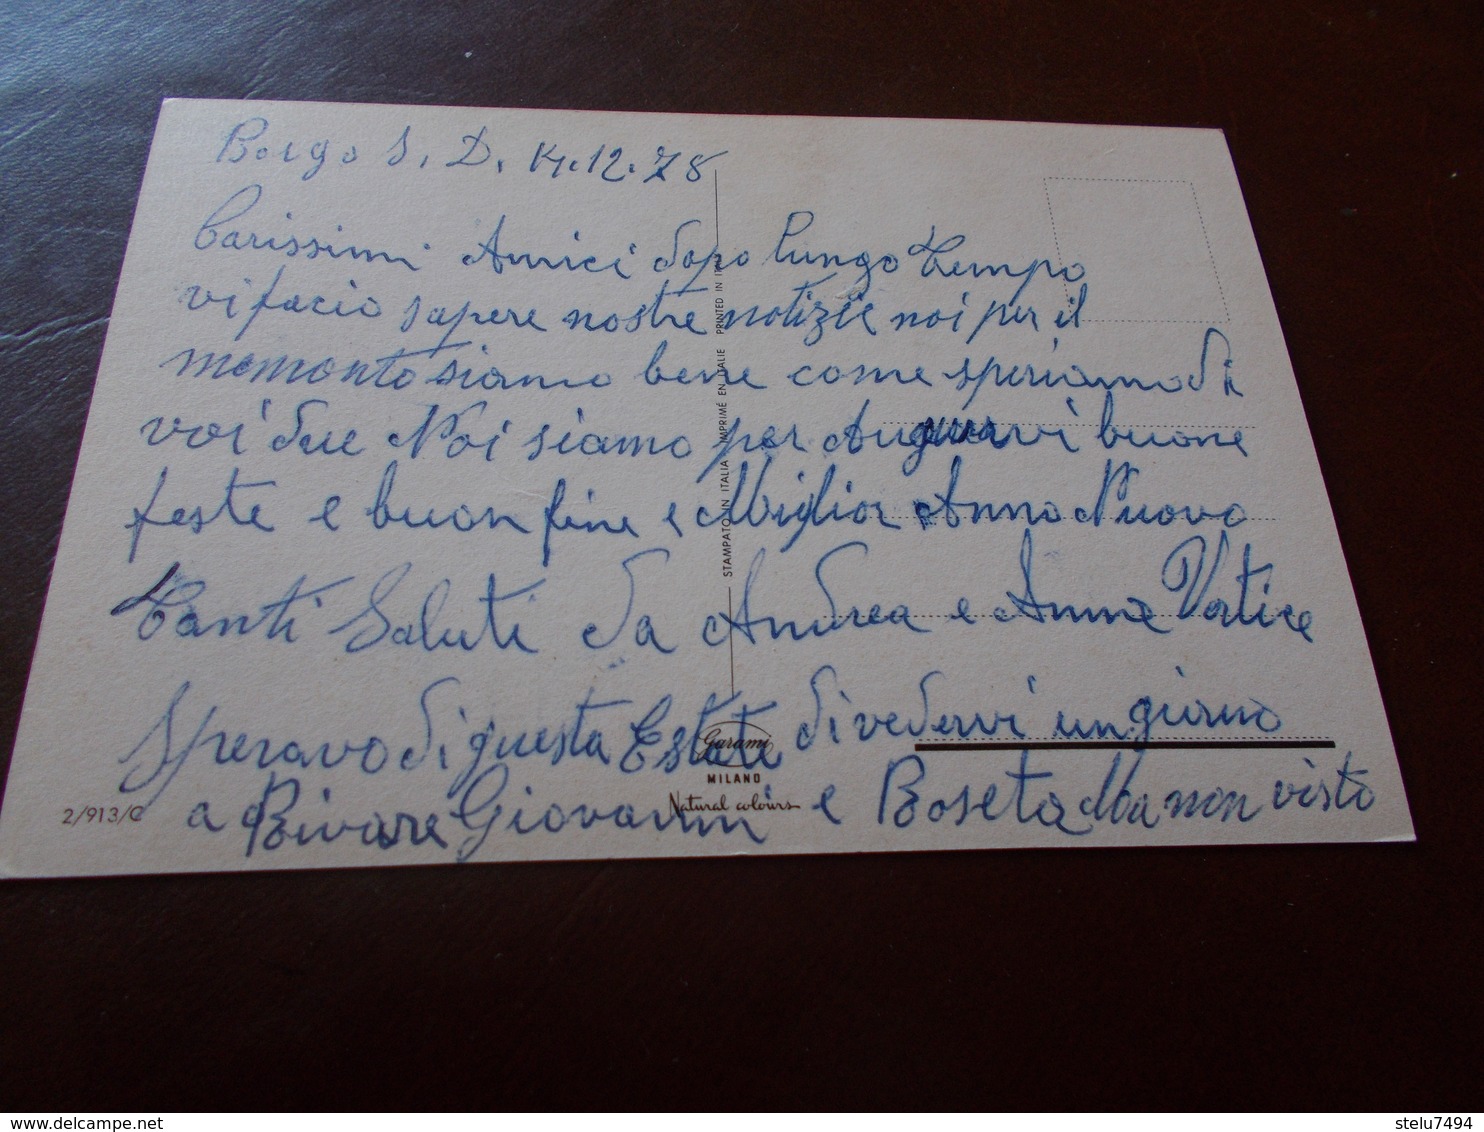 Borgo S. D. 14.12.78
Carissimi Amici dopo lungo tempo
vi facio sapere nostre notizie noi per il
momonto siamo bene come speriamo di
voi due Noi siamo per Auguravi buone
feste e buon fine e Miglior Anno Nuovo
Tanti Saluti da Andrea e Anna
Speravo di questa Estate di vedervi un giorno
a Bivare Giovanni e Boseta Ma non visto
STAMPATO IN ITALIA IMPRIMÉ EN ITALIE PRINTED IN ITALY
Garami
MILANO
Natural colours
2/913/C
www.delcampe.net
stelu7494